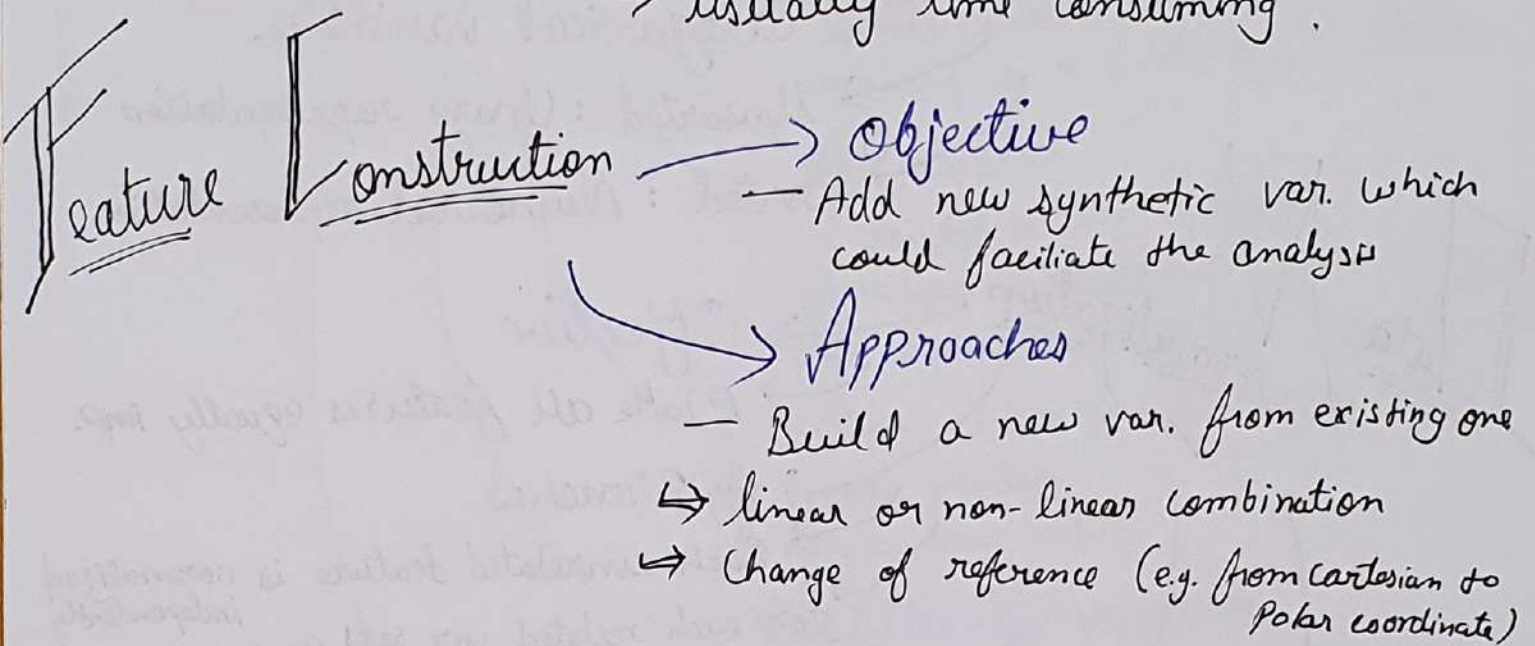 usually time consuming.
Feature Construction → Objective
— Add new synthetic var. which
could faciliate the analysis
→ Approaches
— Build a new var. from existing one
↪ linear or non-linear combination
↪ Change of reference (e.g. from cartesian to
Polar coordinate)